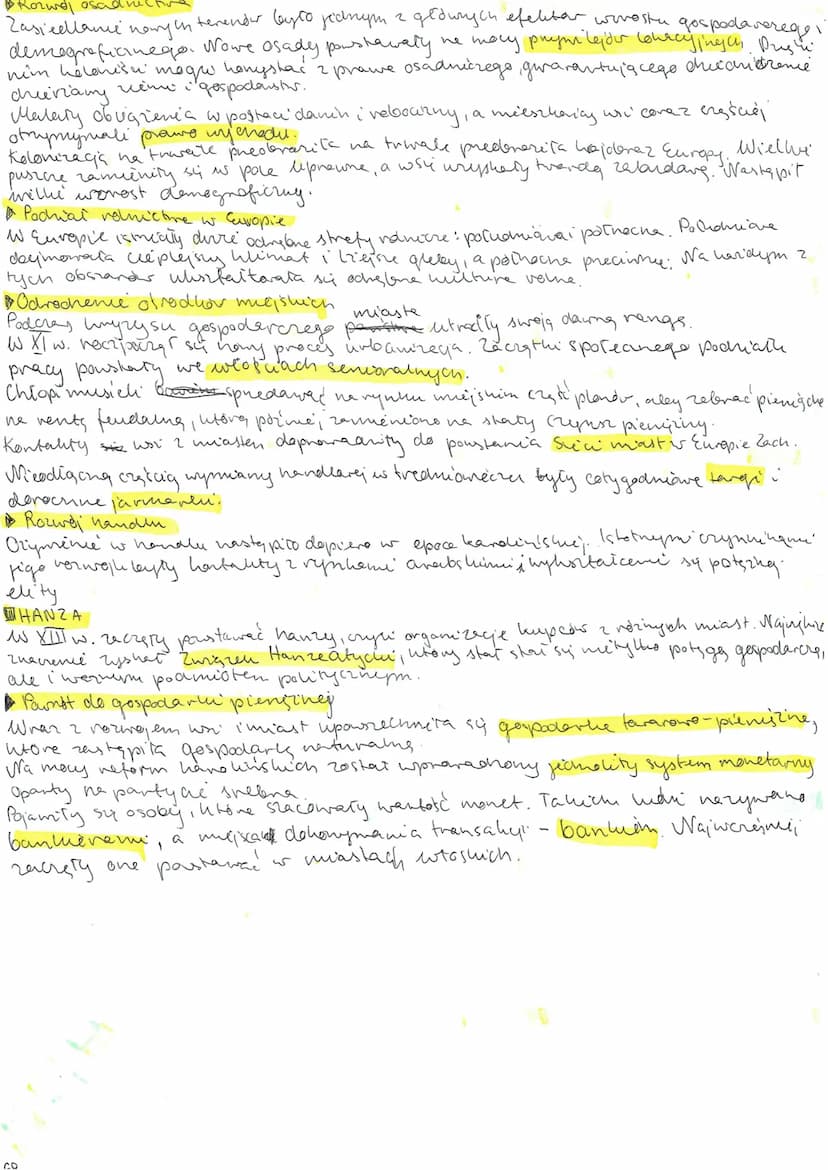 ▶ Rozwój osadnictwa
Zasiedlanie nowych terenów było jednym z głównych efektów wzrostu gospodarczego i
demograficznego. Nowe osady powstawały na mocy przywilejów lokacyjnych. Dzięki
nim koloniści mogli korzystać z prawa osadniczego, gwarantującego dziedziczenie
dzierżawy ziemi i gospodarstw.
Malały obciążenia w postaci danin i robocizny, a mieszkańcy wsi coraz częściej
otrzymywali prawo wychodu.
Kolonizacja na trwałe przeobraziła na trwałe przeobraziła krajobraz Europy. Wielkie
puszcze zamieniły się w pole uprawne, a wsie uzyskały twardą zabudowę. Nastąpił
wielki wzrost demograficzny.
▶ Podział rolnictwa w Europie
W Europie istniały dwie odrębne strefy rolnicze: południowa i północna. Południowa
obejmowała cieplejszy klimat i lżejsze gleby, a północna przeciwnie. Na każdym z
tych obszarów ukształtowała się odrębna kultura rolna.
▶ Odrodzenie ośrodków miejskich
Podczas kryzysu gospodarczego miasta utraciły swoją dawną rangę.
W XI w. rozpoczął się nowy proces urbanizacja. Zaczątki społecznego podziału
pracy powstały we włościach senioralnych.
Chłopi musieli sprzedawać na rynku miejskim część plonów, aby zebrać pieniądze
na rentę feudalną, którą później zamieniono na stały czynsz pieniężny.
Kontakty wsi z miastem doprowadziły do powstania sieci miast w Europie Zach.
Nieodłączną częścią wymiany handlowej w średniowieczu były cotygodniowe targi i
doroczne jarmarki.
▶ Rozwój handlu
Ożywienie w handlu nastąpiło dopiero w epoce karolińskiej. Istotnymi czynnikami
jego rozwoju były kontakty z rynkami arabskimi i wykształcenie się potężnej
elity
HANZA
W XIII w. zaczęły powstawać hanzy, czyli organizacje kupców z różnych miast. Największe
znaczenie zyskał Związek Hanzeatycki, który stał się nie tylko potęgą gospodarczą,
ale i ważnym podmiotem politycznym.
▶ Powrót do gospodarki pieniężnej
Wraz z rozwojem wsi i miast upowszechniła się gospodarka towarowo-pieniężna,
która zastąpiła gospodarkę naturalną.
Na mocy reform karolińskich został wprowadzony jednolity system monetarny
oparty na parytecie srebra.
Pojawiły się osoby, które szacowały wartość monet. Takich ludzi nazywano
bankierami, a miejsca dokonywania transakcji – bankiem. Najwcześniej
zaczęły one powstawać w miastach włoskich.